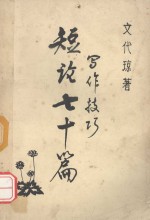 文代琼著
写作技巧
短论七十篇